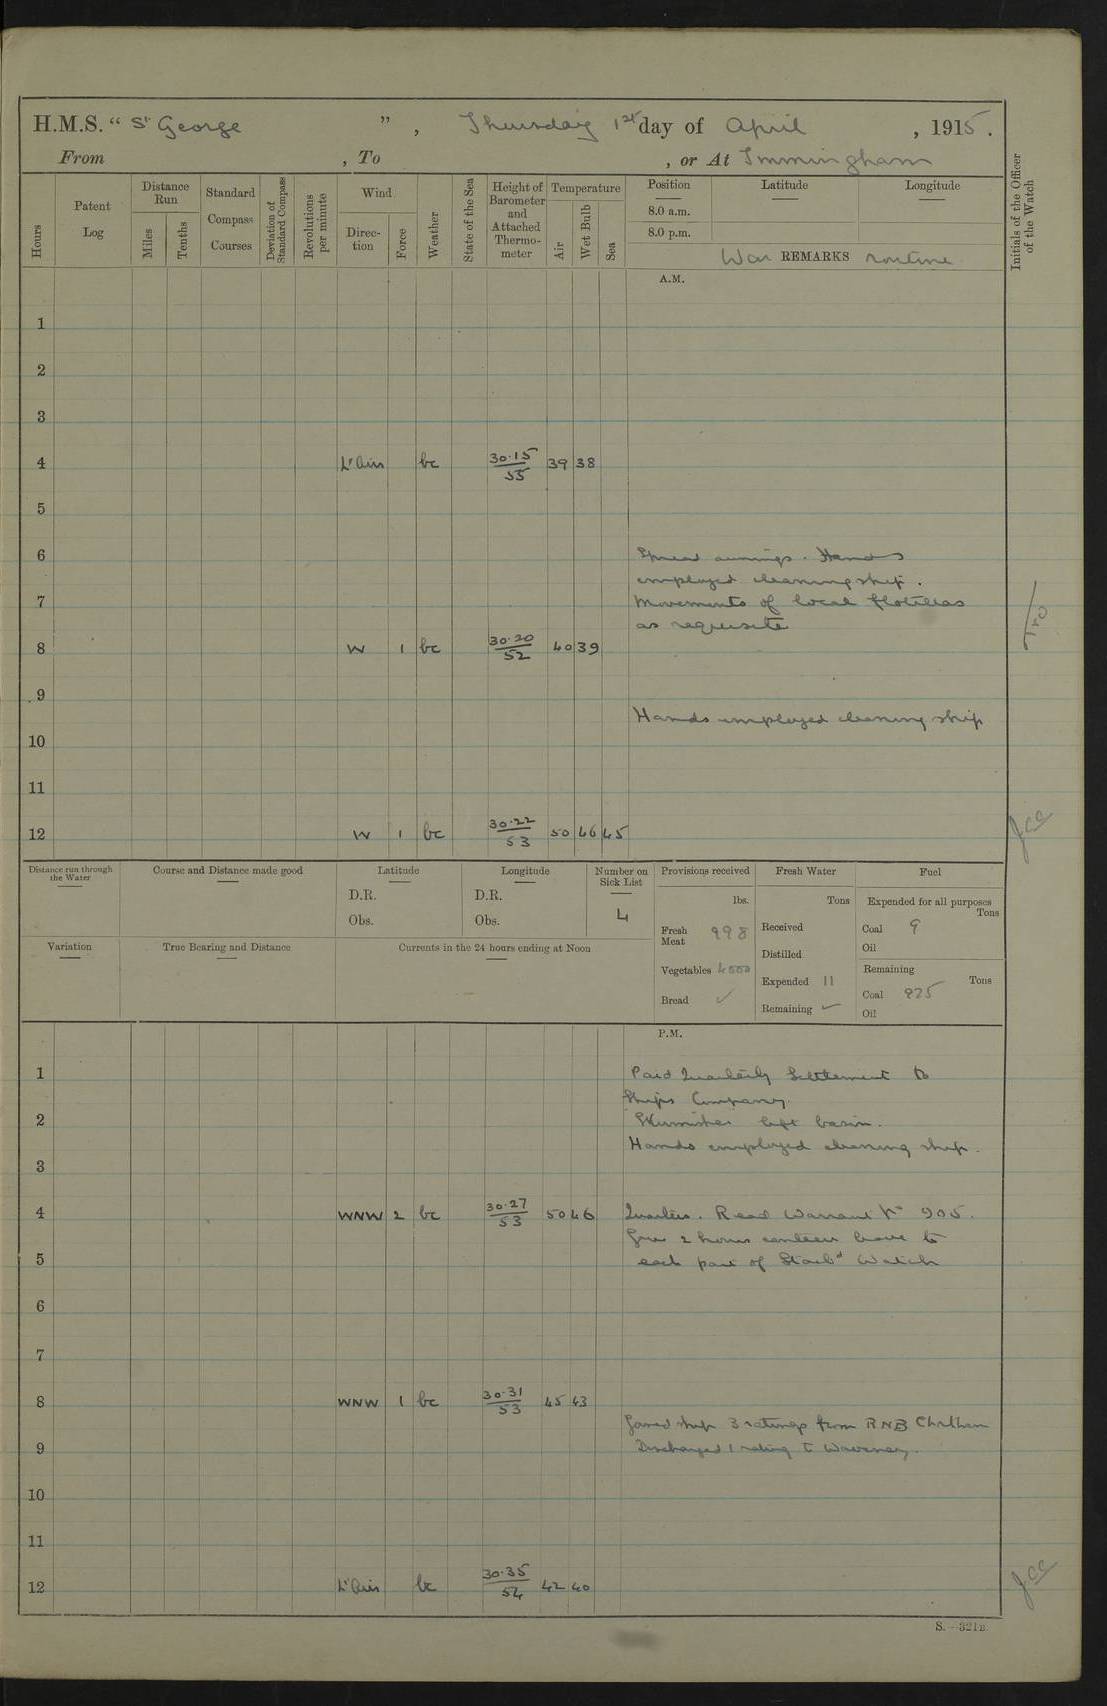 H.M.S. “ St George ” , Thursday 1st day of April , 1915 .
From , To , or At Immingham
Hours
Patent Log
Distance Run
Miles
Tenths
Standard Compass Courses
Deviation of Standard Compass
Revolutions per minute
Wind
Direction
Force
Weather
State of the Sea
Height of Barometer and Attached Thermometer
Temperature
Air
Wet Bulb
Sea
Position
8.0 a.m.
8.0 p.m.
Latitude
Longitude
War REMARKS routine
Initials of the Officer of the Watch
A.M.
1
2
3
4 Lt Airs bc 30.15/55 39 38
5
6 Spread awnings. Hands
employed cleaning ship.
7 Movements of local flotillas
as requisite
8 W 1 bc 30.20/52 40 39
9
Hands employed cleaning ship
10
11
12 W 1 bc 30.22/53 50 46 45
Distance run through the Water
Course and Distance made good
Latitude
D.R.
Obs.
Longitude
D.R.
Obs.
Number on Sick List
4
Provisions received
lbs.
Fresh Meat 998
Vegetables 4000
Bread ✓
Fresh Water
Tons
Received
Distilled
Expended 11
Remaining ✓
Fuel
Expended for all purposes
Tons
Coal 9
Oil
Remaining
Tons
Coal 925
Oil
Variation
True Bearing and Distance
Currents in the 24 hours ending at Noon
P.M.
1 Paid Quarterly Settlement to
Ships Company.
2 Skirmisher left basin.
Hands employed cleaning ship.
3
4 WNW 2 bc 30.27/53 50 46 Quarters. Read Warrant No 905.
Gave 2 hours canteen leave to
5 each part of Starbd Watch
6
7
8 WNW 1 bc 30.31/53 45 43
Joined ship 3 ratings from RNB Chatham
9 Discharged 1 rating to Waveney.
10
11
12 Lt Airs bc 30.35/54 42 40
S.—321B.